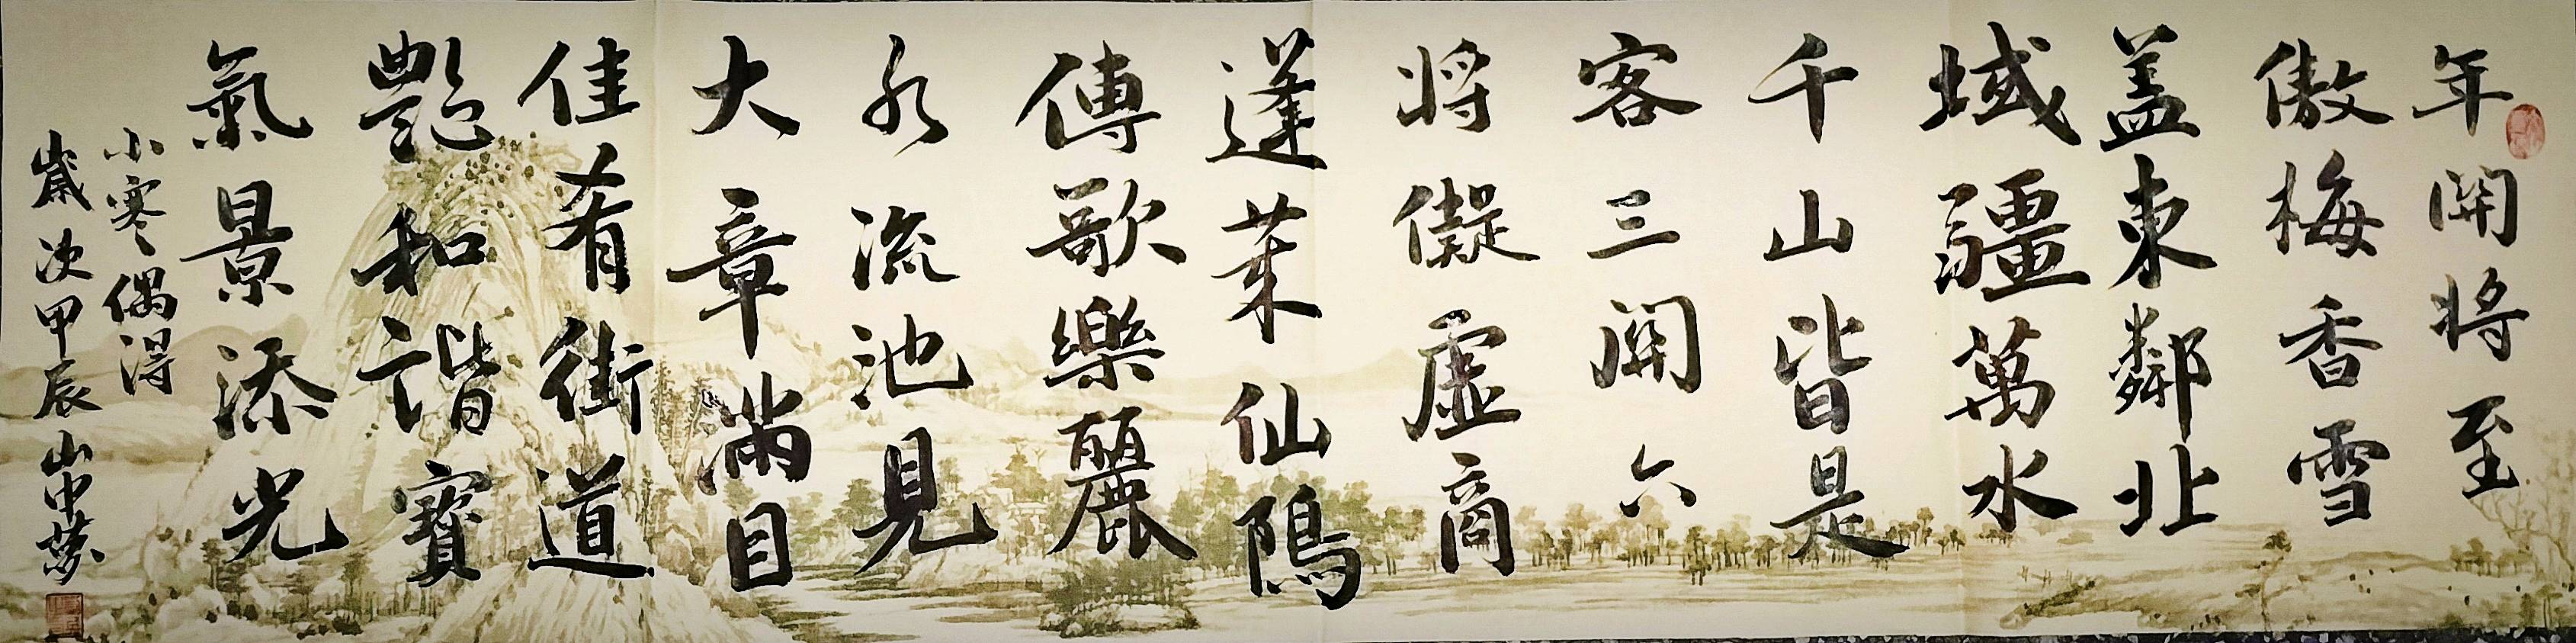 年開將至
傲梅香雪
蓋東鄰北
域疆萬水
千山皆是
客三關六
將儗虛商
蓬萊仙隝
傳歌樂麗
水流池見
大章滿目
佳肴街道
艷和諧寶
氣景添光
小寒偶得
歲次甲辰山中夢